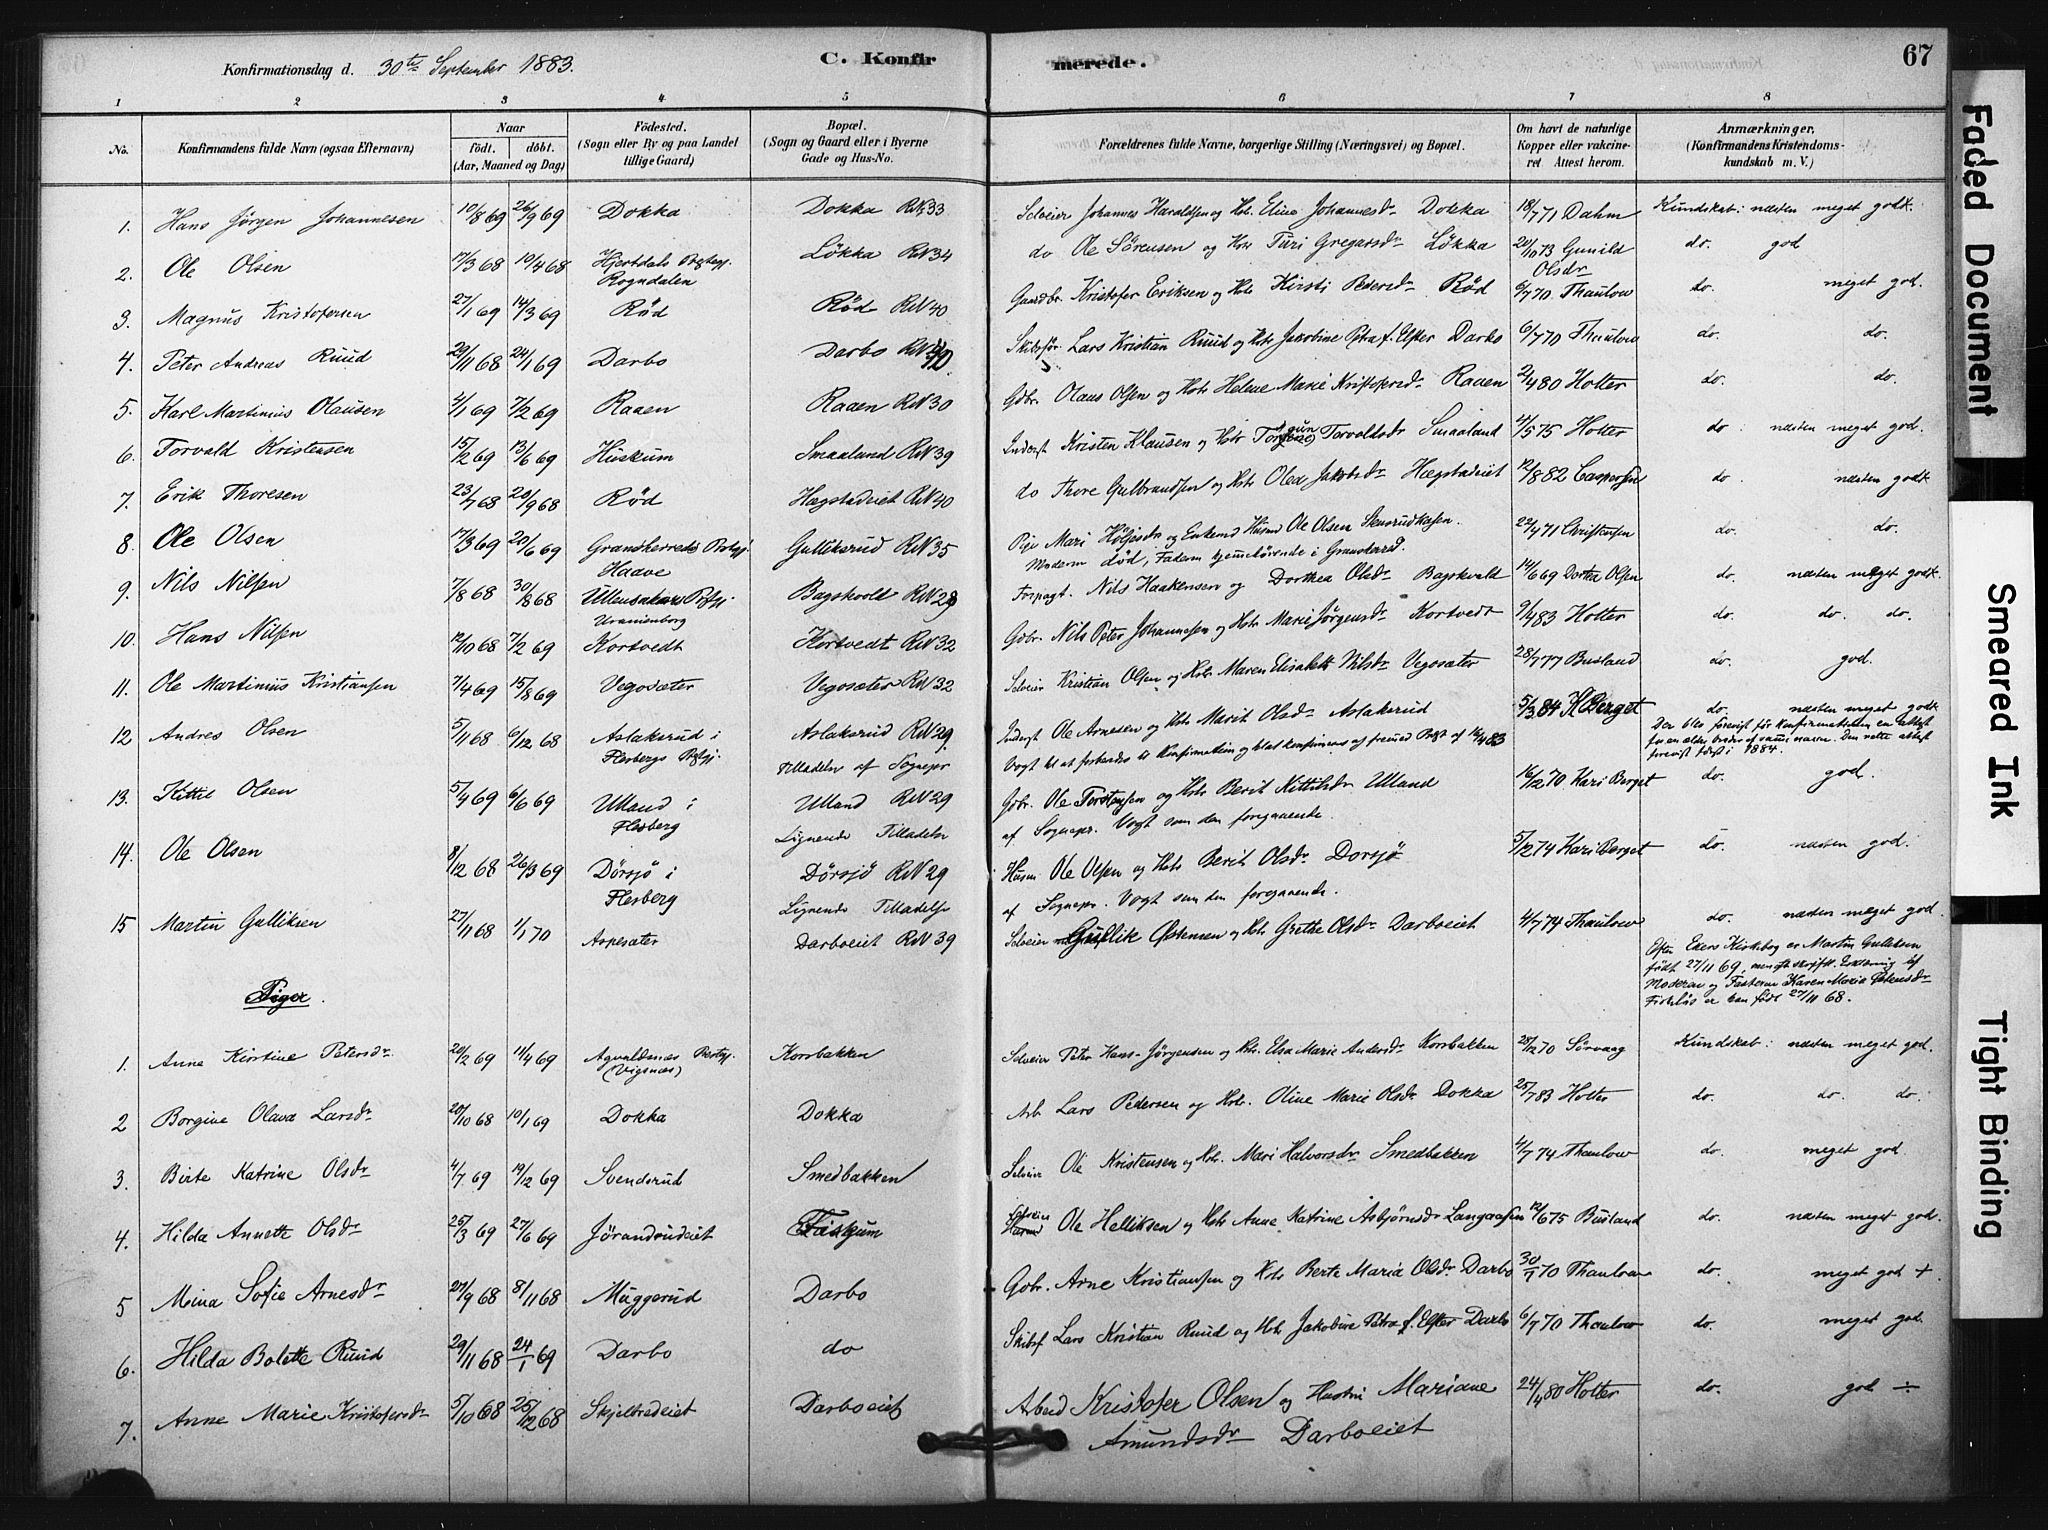 Konfirmationsdag d. 30te September 1883. C. Konfirmerede. 67
1 2 3 4 5 6 7 8
No. Konfirmandens fulde Navn (ogsaa Efternavn) Naar født. døbt. (Aar, Maaned og Dag) Fødested. (Sogn eller By og paa Landet tillige Gaard) Bopæl. (Sogn og Gaard eller i Byerne Gade og Hus-No.) Forældrenes fulde Navne, borgerlige Stilling (Næringsvei) og Bopæl. Om havt de naturlige Kopper eller vakcineret. Attest herom. Anmærkninger. (Konfirmandens Kristendomskundskab m. V.)
1. Hans Jørgen Johannesen 10/8 69 26/9 69 Dokka Dokka RN 33 Selveier Johannes Haraldsen og Hstr. Eline Johannesdr Dokka 18/7 71 Dahm Kundskab: næsten meget godt.
2. Ole Olsen 17/3 68 10/4 68 Hjertdals Prgjp. Rogndalen Løkka RN 34 do Ole Sørensen og Hstr Turi Gregarsdr Løkka 20/10 73 Gunild Olsdr do. god
3. Magnus Kristofersen 27/1 69 14/3 69 Rød Rød RN 40 Gaardbr. Kristofer Eriksen og Hstr Kirsti Pedersdr Rød 6/7 70 Thaulow do. meget god.
4. Peter Andreas Ruud 29/11 68 24/1 69 Darbo Darbo RN 40 Skibsfør. Lars Kristian Ruud og Hstr Jakobine Petra f. Elster Darbo 6/7 70 Thaulow do. do.
5. Karl Martinius Olausen 4/1 69 7/2 69 Raaen Raaen RN 30 Gdbr. Olaus Olsen og Hstr Helene Marie Kristofersdr Raaen 2/4 80 Holter do. do.
6. Torvald Kristensen 15/2 69 13/6 69 Huskum Smaaland RN 39 Inderst Kristen Klausen og Hstr Torgun Torvaldsdr Smaaland 4/5 75 Holter do : næsten meget god.
7. Erik Thoresen 23/7 68 20/9 68 Rød Hægstadeiet RN 40 do Thore Gulbrandsen og Hstr Olea Jakobsdr Hægstadeiet 12/8 82 Caspersen do. næsten godt
8. Ole Olsen 17/3 69 20/6 69 Gransherreds Prstgj. Haave Gulliksrud RN 35 Pige Mari Høljesdr og Enkemd Husmd Ole Olsen Stensrudkasen. 22/4 71 Christensen do. do.
Moderen død, Faderen hjemmehørende i Gransherred.
9. Nils Nilsen 7/8 68 30/8 68 Ullensakers Prstgj. Uranienborg Bagskvold RN 28 Forpagt. Nils Haakensen og Dorthea Olsdr Bagskvald 14/6 69 Dortea Olsen do. næsten meget godt.
10. Hans Nilsen 12/10 68 7/2 69 Kortvedt Kortvedt RN 32 Gdbr. Nils Peter Johannesen og Hstr Marie Jørgensdr Kortvedt 9/4 83 Holter do. do. do.
11. Ole Martinius Kristiansen 7/4 69 15/8 69 Vegosæter Vegosæter RN 32 Selveier Kristian Olsen og Hstr Maren Elisabeth Nilsdr Vegosæter 28/7 77 Busland do. god.
12 Andres Olsen 5/11 68 6/12 68 Aslaksrud i Flesbergs Prstgj. Aslaksrud RN 29. Inderst Ole Arnesen og Hstr Marit Olsdr Aslaksrud 5/3 84 K Berget do. næsten meget godt
Tilladelse af Sognepr Vogt til at forberedes til Konfirmation og blot konfirmeres af fremmed Prst af 16/4 83 Der blev forevist før Konfirmationen en attest for en ældre broder af samme navn. Den rette attest forevist først i 1884.
13. Kittil Olsen 5/4 69 6/6 69 Ulland i Flesberg Ulland RN 29 Gdbr. Ole Torstensen og Hstr Berit Kittilsdr Ulland 16/12 70 Kari Berget do. god.
Lignende Tilladelse af Sognepr. Vogt som den foregaaende.
14. Ole Olsen 8/12 68 26/3 69 Dørsjø i Flesberg Dørsjø RN 29 Husm Ole Olsen og Hstr Berit Olsdr Dorsjø 5/12 74 Kari Berget do. næsten god.
Lignende Tilladelse af Sognepr. Vogt som den foregaaende.
15 Martin Gulliksen 27/11 68 1/1 70 Aspesæter Darboeiet RN 39 Selveier Gullik Østensen og Hstr Grethe Olsdr Darboeiet 4/7 74 Thaulow do. næsten meget god.
Efter Ekers Kirkebog er Martin Gulliksen født 27/11 69, men eft skriftl. Erklæring af Moderen og Fasteren Karen Marie Østensdr Fiskløs er han født 27/11 68.
Piger.
1. Anne Kirstine Petersdr. 20/2 69 11/4 69 Agvaldsnes Prestgj. (Vigsnæs) Korsbakken Selveier Peter Hans-Jørgensen og Hstr. Elsa Marie Andersdr Korsbakken 28/12 70 Sørvaag Kundskab: næsten meget god.
2 Borgine Olava Larsdr 20/10 68 10/1 69 Dokka Dokka Arb Lars Pedersen og Hstr. Oline Marie Olsdr Dokka 25/7 83 Holter do. do. do.
3. Birte Katrine Olsdr 4/7 69 19/12 69 Svendsrud Smedbakken Selveier Ole Kristensen og Hstr. Mari Halvorsdr Smedbakken 4/7 74 Thaulow do. meget god.
4. Hilda Annette Olsdr 25/3 69 27/6 69 Jørandrudeiet Fiskum Selveier Ole Helliksen og Hstr Anne Katrine Asbjørnsdr Langaasen 12/6 75 Busland do. næsten meget god.
5 Mina Sofie Arnesdr 27/9 68 8/11 68 Muggerud Darbo Gdbr. Arne Kristiansen og Hstr Berte Maria Olsdr Darbo 30/7 70 Thaulow do. meget god +
6. Hilda Bolette Ruud 29/11 68 24/1 69 Darbo do Skibsf Lars Kristian Ruud og Hstr Jakobine Petra f. Elster Darbo 6/7 70 Thaulow do. meget god
7. Anne Marie Kristofersdr 5/10 68 25/12 68 Skjelbredeiet Darboeiet Arbeid Kristofer Olsen og Hustru Mariane 24/4 80 Holter do. god ÷
Amundsdr Darboeiet
Faded Document
Smeared Ink
Tight Binding